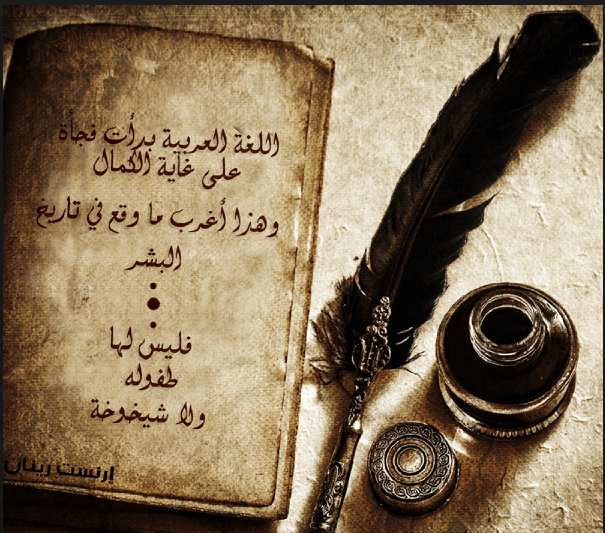 اللغة العربية بدأت فجأة
على غاية الكمال
وهذا أغرب ما وقع في تاريخ
البشر
فليس لها
طفوله
ولا شيخوخة
إرنست رينان